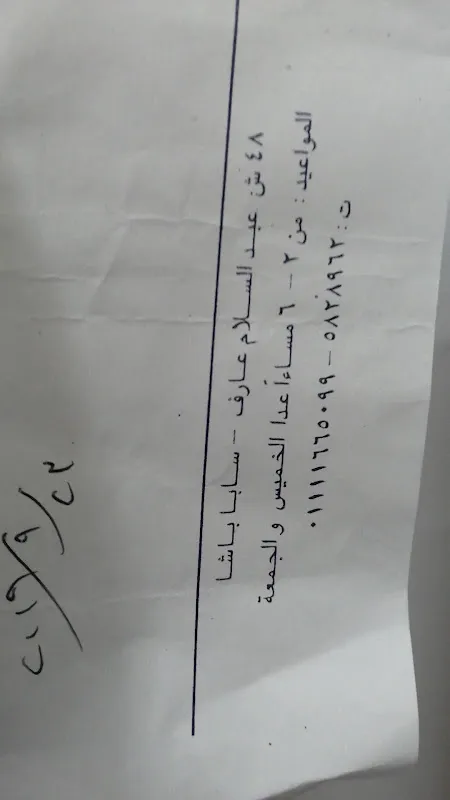 ٢٠١٩/٩/٢٣
٤٨ ش عبد السلام عارف – سابا باشا
المواعيد : من ٢ – ٦ مساءاً عدا الخميس و الجمعة
ت : ٥٨٢٨٩٦٢ – ٠١١١١٦٦٥٠٩٩